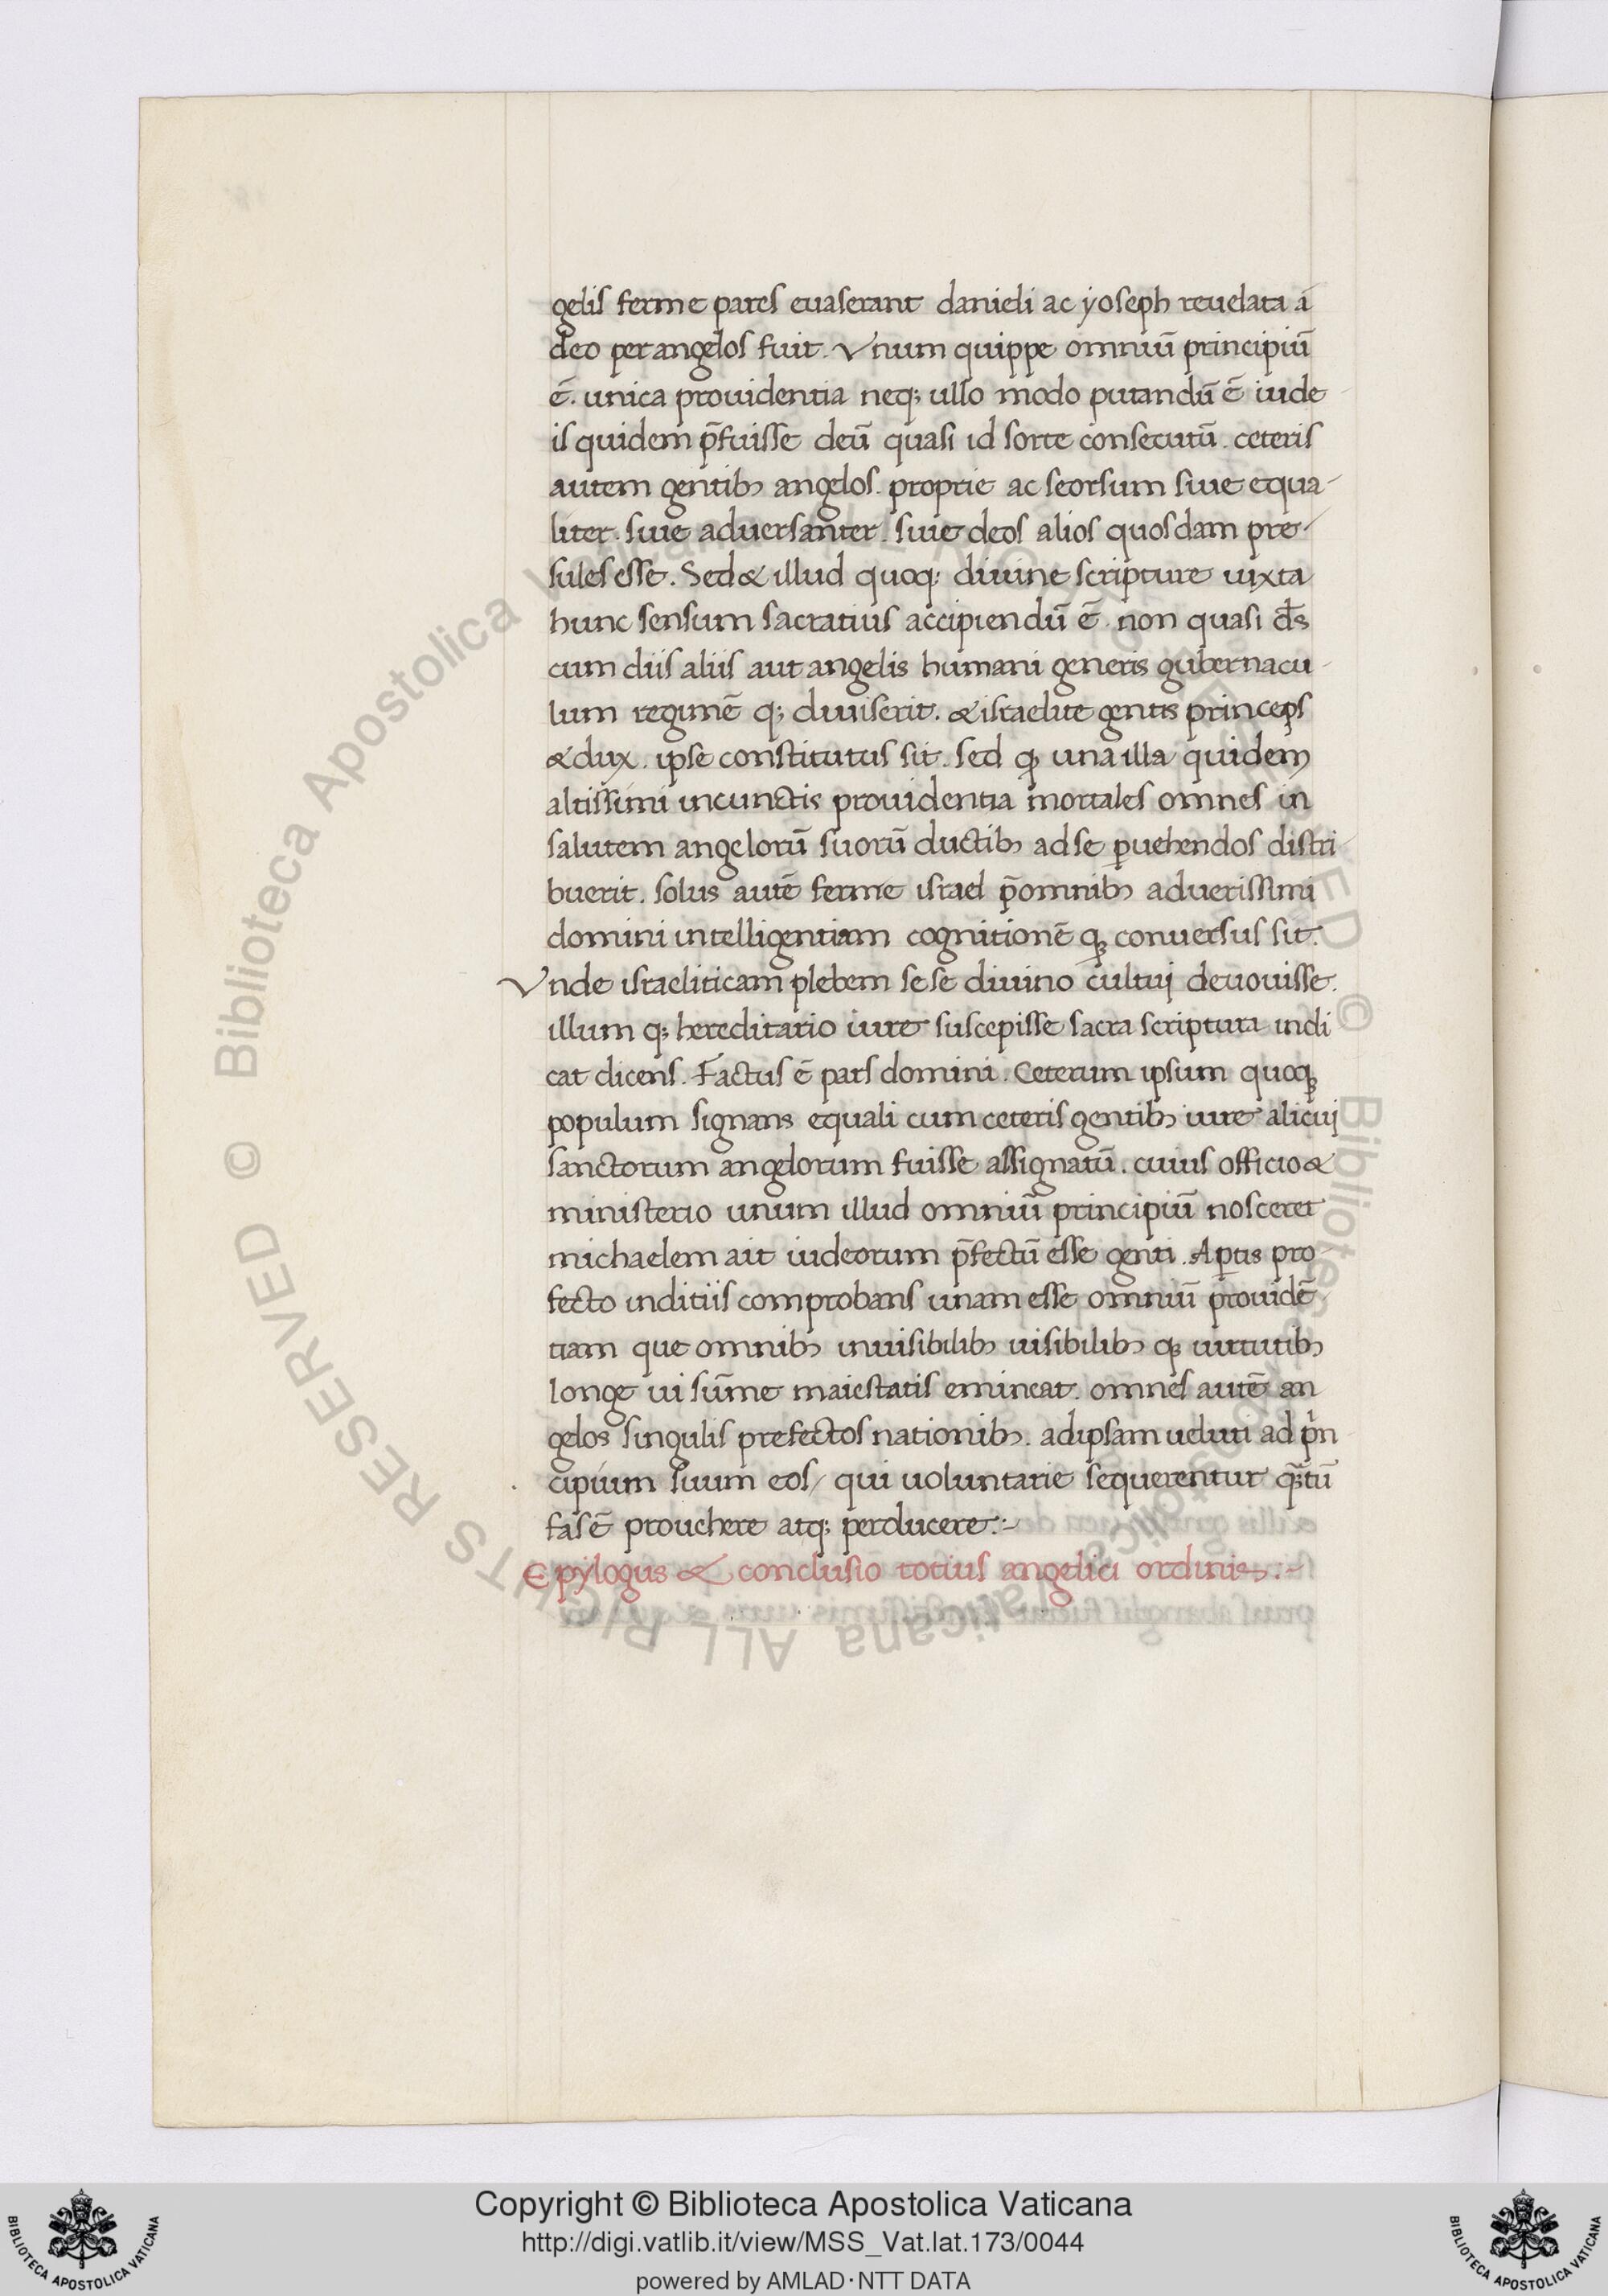 gelis ferme pares euaserant danieli ac yoseph reuelata á
deo per angelos fuit. Vnum quippe omniū principiū
ē. unica prouidentia neq; ullo modo putandū ē iude
is quidem p̄fuisse deū quasi id sorte consecutū. ceteris
autem gentibꝫ angelos. proprie ac seorsum siue equa-
liter. siue aduersanter. siue deos alios quosdam pre-
sules esse. Sed & illud quoq; diuine scripture iuxta
hunc sensum sacratius accipiendū ē. non quasi d̄s
cum diis aliis aut angelis humani generis gubernacu-
lum regimē q; diuiserit. & israelite gentis princeps
& dux. ipse constitutus sit. sed qꝫ una illa quidem
altissimi in cunctis prouidentia mortales omnes in
salutem angelorū suorū ductibꝫ ad se ꝑuehendos distri-
buerit. solus autē ferme israel p̄omnibꝫ ad uerissimi
domini intelligentiam cognitionē qꝫ conuersus sit.
Vnde israeliticam plebem sese diuino cultuj deuouisse.
illum q; hereditario iure suscepisse sacra scriptura indi
cat dicens. Factus ē pars domini. Ceterum ipsum quoqꝫ
populum signans equali cum ceteris gentibꝫ iure alicuj
sanctorum angelorum fuisse assignatū. cuius officio &
ministerio unum illud omniū principiū nosceret
michaelem ait iudeorum p̄fectū esse genti. Aꝑtis pro-
fecto inditiis comprobans unam esse omniū prouidē-
tiam que omnibꝫ inuisibilibꝫ uisibilibꝫ qꝫ uirtutibꝫ
longe ui sūme maiestatis emineat. omnes autē an
gelos singulis prefectos nationibꝫ. ad ipsam ueluti ad pͥn
cipium suum eos/ qui uoluntarie sequerentur qꝫtū
fas ē prouehere atq; perducere.:~
Epylogus & conclusio totius angelici ordinis.:~
Copyright © Biblioteca Apostolica Vaticana
http://digi.vatlib.it/view/MSS_Vat.lat.173/0044
powered by AMLAD·NTT DATA
BIBLIOTECA APOSTOLICA VATICANA
BIBLIOTECA APOSTOLICA VATICANA
© Biblioteca Apostolica Vaticana ALL RIGHTS RESERVED